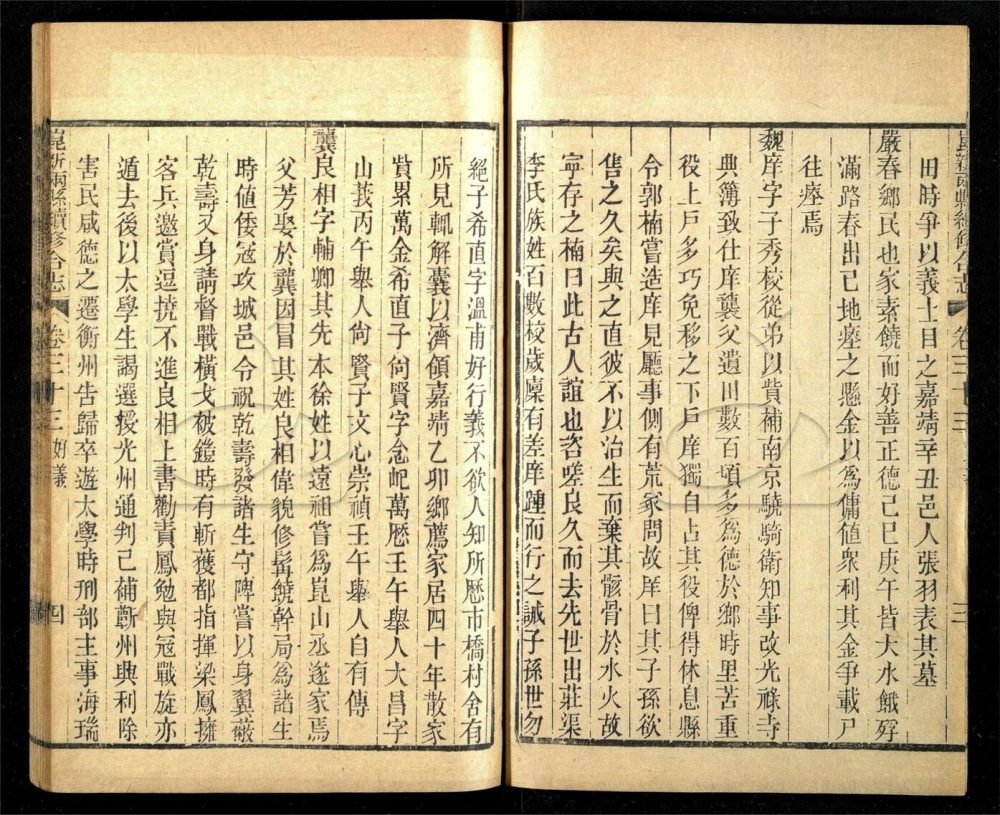 田時爭以義士目之嘉靖辛丑邑人張羽表其墓
嚴春鄉民也家素饒而好善正德己巳庚午皆大水餓殍
滿路春出己地瘞之懸金以爲傭値衆利其金爭載尸
往瘞焉
魏庠字子秀校從弟以貲補南京驍騎衛知事改光祿寺
典簿致仕庠襲父遺田數百頃多爲德於鄉時里苦重
役上戶多巧免移之下戶庠獨自占其役俾得休息縣
令郭楠嘗造庠見廳事側有荒冢問故庠曰其子孫欲
售之久矣與之直彼不以治生而棄其骸骨於水火故
寧存之楠曰此古人誼也咨嗟良久而去先世出莊渠
李氏族姓百數校歲廩有差庠踵而行之誡子孫世勿
絕子希直字溫甫好行義不欲人知所歷市橋村舍有
所見輒解囊以濟領嘉靖乙卯鄉薦家居四十年散家
貲累萬金希直子尙賢字念屺萬曆壬午舉人大昌字
山莪丙午舉人尙賢子文心崇禎壬午舉人自有傳
龔良相字輔卿其先本徐姓以遠祖嘗爲崑山丞遂家焉
父芳娶於龔因冒其姓良相偉貌修髯饒幹局爲諸生
時値倭寇攻城邑令祝乾壽發諸生守陴嘗以身翼蔽
乾壽又身請督戰橫戈破鐙時有斬獲都指揮梁鳳擁
客兵邀賞逗撓不進良相上書勸責鳳勉與寇戰旋亦
遁去後以太學生謁選授光州通判己補蘄州興利除
害民咸德之遷衡州告歸卒遊太學時刑部主事海瑞
崑新兩縣續修合志 卷三十三 好義 四